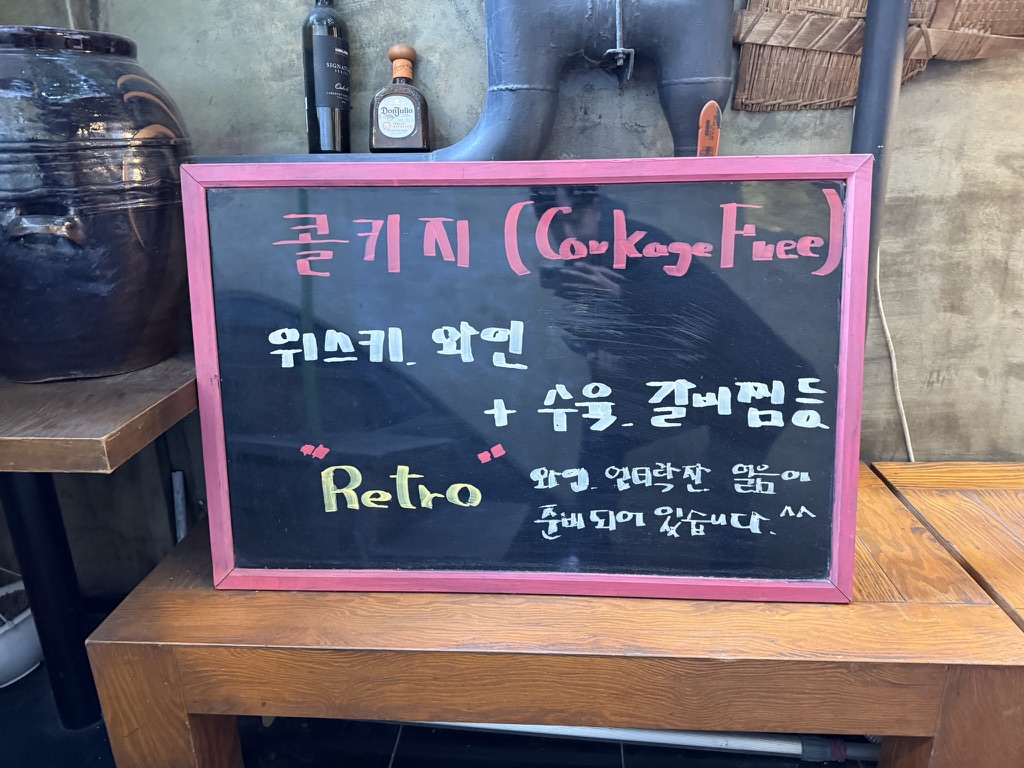 SIGNATURE
Don Julio
콜키지 (Corkage Free)
위스키. 와인
+ 수육. 갈비찜 등
"Retro"
와인. 언더락잔. 얼음이
준비 되어 있습니다. ^^